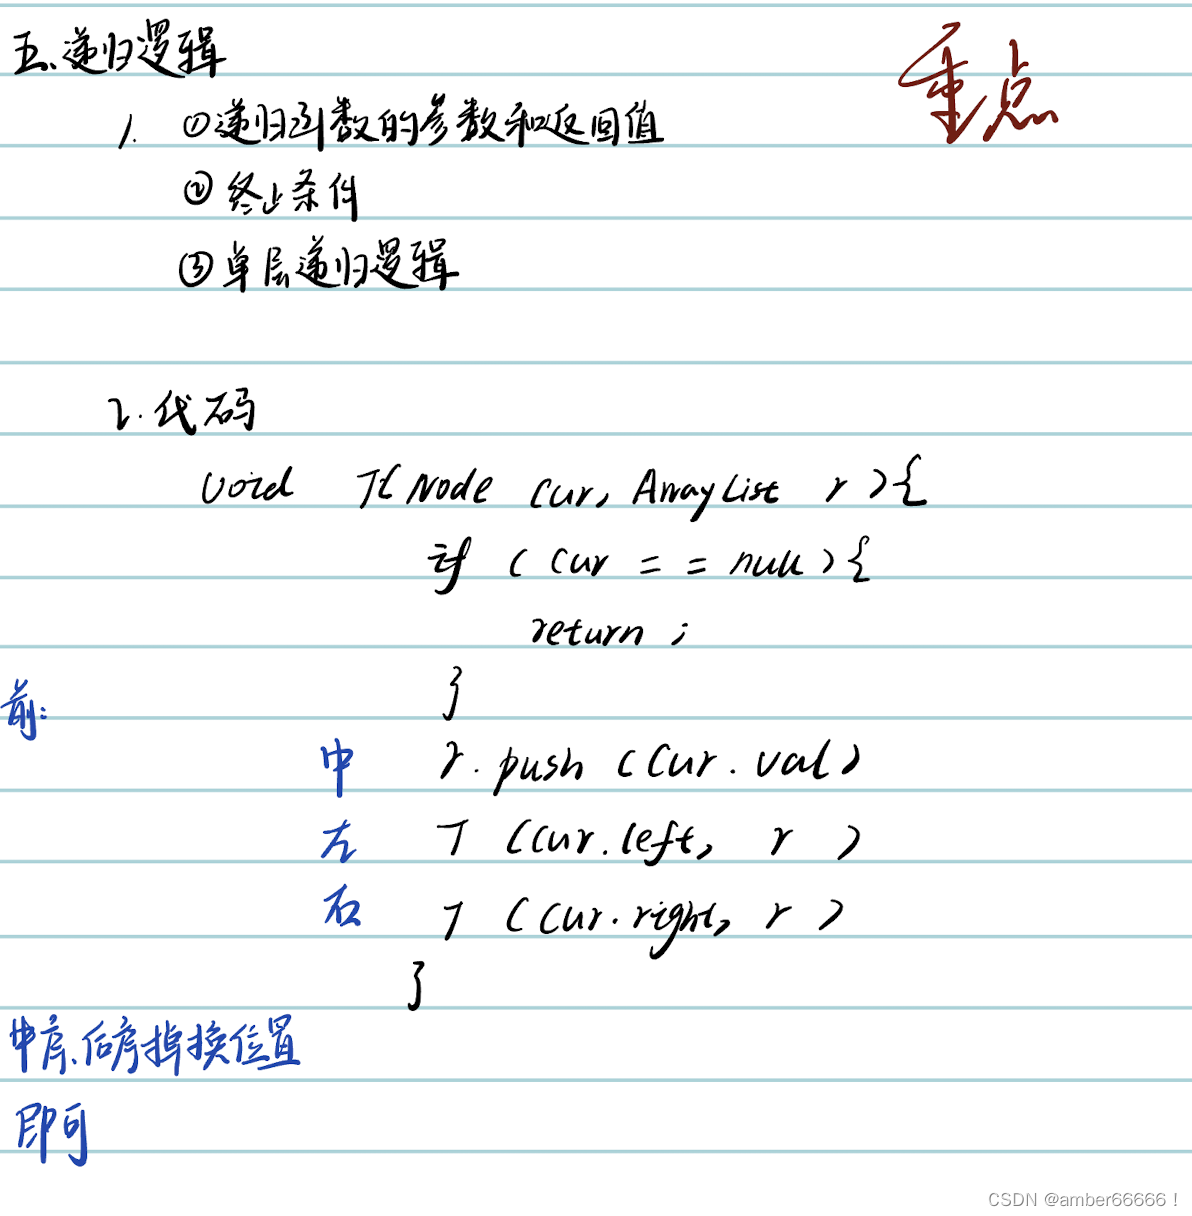 五、递归逻辑
重点
1. ①递归函数的参数和返回值
②终止条件
③单层递归逻辑
2. 代码
void T(Node cur, ArrayList r){
if (cur == null){
return ;
}
前:
中 r.push (cur.val)
左 T (cur.left, r )
右 T (cur.right, r )
}
中序、后序掉换位置
即可
CSDN @amber66666！